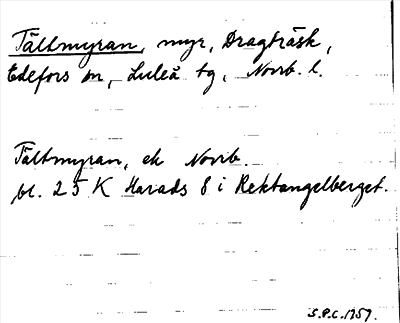 Tältmyran, myr, Dragträsk,
Edefors sn, Luleå tg, Norrb. l.
Tältmyran, ek Norrb.
bl. 25 K Harads 8 i Rektangelberget.
S.P.C. 1957.